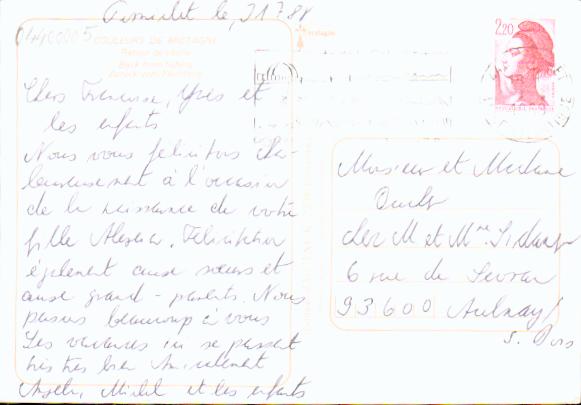 le, 31 7 88
04400005
COULEURS DE BRETAGNE
Retour de pêche
Back from fishing
2,20
Chers Françoise, Yves et
les enfants
Nous vous félicitons cha-
leureusement à l'occasion
de la naissance de votre
fille Félicitation
également aux sœurs et
aux grand-parents. Nous
pensons beaucoup à vous
Les vacances ici se passent
très très bien Amicalement
Michel et les enfants
Monsieur et Madame
chez M et Mme
6 rue de Sevran
93600 Aulnay s/
s. Bois